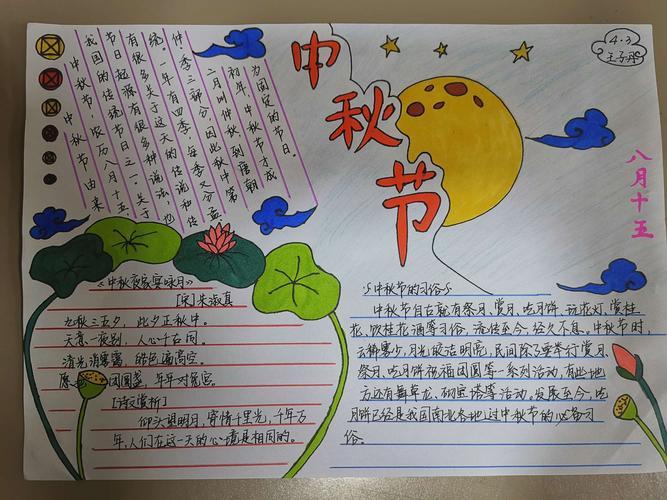 中秋节
4.3
八月十五
中秋节由来
中秋节,农历八月十五,
我国的传统节日之一。关于
节日起源有很多种说法,也
有很多关于这天的传说和传
统。一年有四季,每季又分孟
仲季三部分,因此秋中第
二月叫仲秋,到唐朝
初年,中秋节才成
为固定的节日。
《中秋夜家宴咏月》
[宋]朱淑真
九秋三五夕,此夕正秋中。
天意一夜别,人心千古同。
清光消雾霭,皓色遍高空。
愿 团圆盏,年年对兔宫。
[诗文赏析]
仰头望明月,寄情千里光,千年万
年,人们在这一天的心境是相同的。
中秋节的习俗
中秋节自古就有祭月、赏月、吃月饼、玩花灯、赏桂
花、饮桂花酒等习俗,流传至今,经久不息。中秋节时,
云稀雾少,月光皎洁明亮,民间除了要举行赏月、
祭月、吃月饼祝福团圆等一系列活动,有些地
方还有舞草龙、砌宝塔等活动。发展至今,吃
月饼已经是我国南北各地过中秋节的必备习
俗。